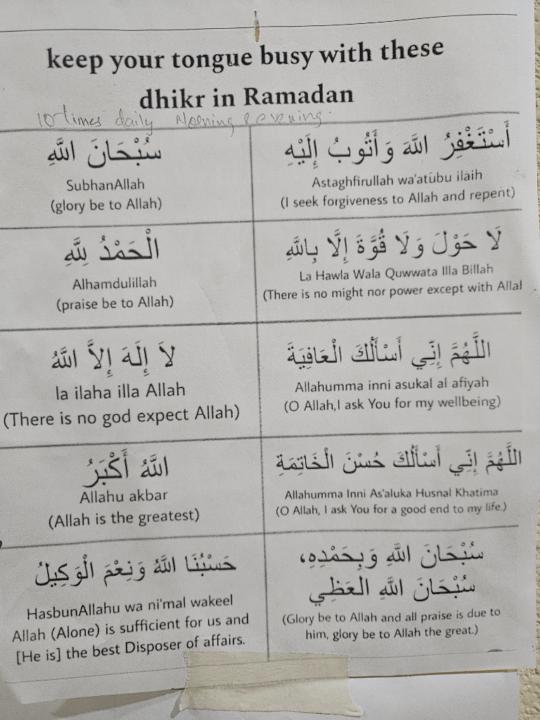 keep your tongue busy with these
dhikr in Ramadan
10 times daily Morning & evening.
سُبْحَانَ اللَّهِ
SubhanAllah
(glory be to Allah)
أَسْتَغْفِرُ اللَّهَ وَأَتُوبُ إِلَيْهِ
Astaghfirullah wa'atubu ilaih
(I seek forgiveness to Allah and repent)
الْحَمْدُ لِلَّهِ
Alhamdulillah
(praise be to Allah)
لَا حَوْلَ وَلَا قُوَّةَ إِلَّا بِاللَّهِ
La Hawla Wala Quwwata Illa Billah
(There is no might nor power except with Allah
لاَ إِلَهَ إِلاَّ اللَّهُ
la ilaha illa Allah
(There is no god expect Allah)
اللَّهُمَّ إِنِّي أَسْأَلُكَ الْعَافِيَةَ
Allahumma inni asukal al afiyah
(O Allah,I ask You for my wellbeing)
اللَّهُ أَكْبَرُ
Allahu akbar
(Allah is the greatest)
اللَّهُمَّ إِنِّي أَسْأَلُكَ حُسْنَ الْخَاتِمَةِ
Allahumma Inni As'aluka Husnal Khatima
(O Allah, I ask You for a good end to my life.)
حَسْبُنَا اللَّهُ وَنِعْمَ الْوَكِيلُ
HasbunAllahu wa ni'mal wakeel
Allah (Alone) is sufficient for us and
[He is] the best Disposer of affairs.
سُبْحَانَ اللَّهِ وَبِحَمْدِهِ،
سُبْحَانَ اللَّهِ العَظِي
(Glory be to Allah and all praise is due to
him, glory be to Allah the great.)